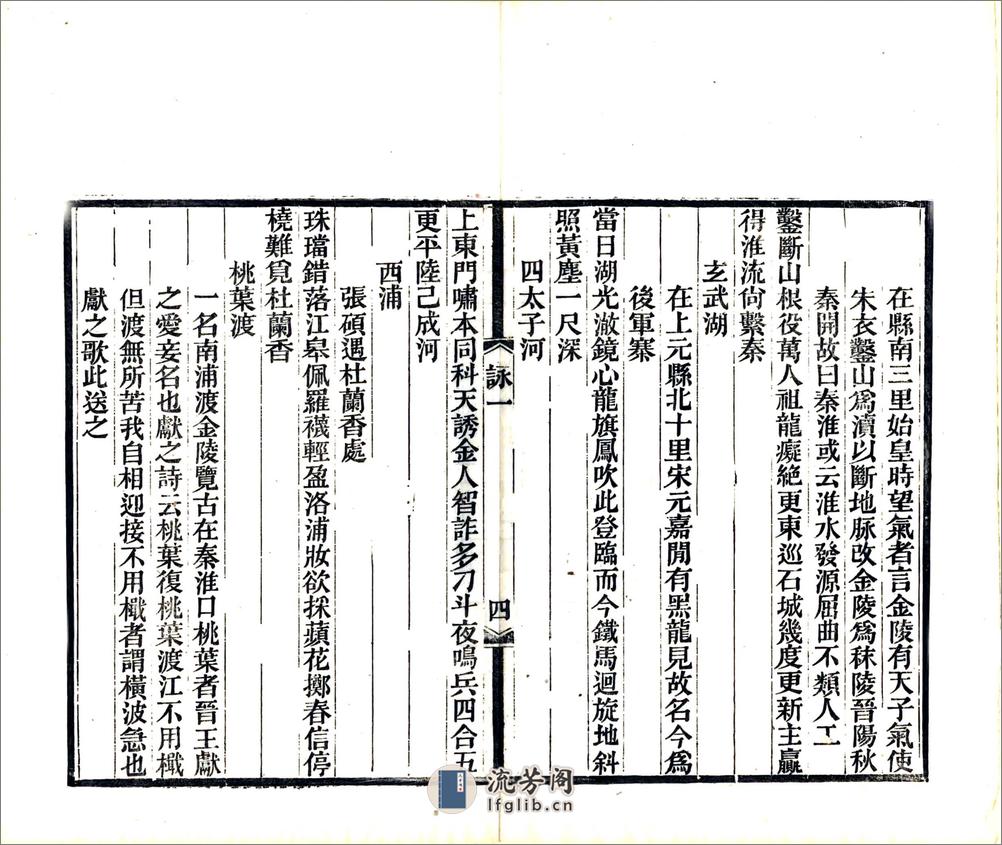 在縣南三里始皇時望氣者言金陵有天子氣使
朱衣鑿山爲瀆以斷地脉改金陵爲秣陵晉陽秋
秦開故曰秦淮或云淮水發源屈曲不類人工
鑿斷山根役萬人祖龍癡絕更東巡石城幾度更新主贏
得淮流尙繫秦
玄武湖
在上元縣北十里宋元嘉閒有黑龍見故名今爲
後軍寨
當日湖光澈鏡心龍旗鳳吹此登臨而今鐵馬迴旋地斜
照黃塵一尺深
四太子河
詠一
四
上東門嘯本同科天誘金人智詐多刀斗夜鳴兵四合五
更平陸已成河
西浦
張碩遇杜蘭香處
珠璫錯落江皋佩羅襪輕盈洛浦妝欲採蘋花擲春信停
橈難覓杜蘭香
桃葉渡
一名南浦渡金陵覽古在秦淮口桃葉者晉王獻
之愛妾名也獻之詩云桃葉復桃葉渡江不用檝
但渡無所苦我自相迎接不用檝者謂橫波急也
獻之歌此送之
流芳阁
lfglib.cn